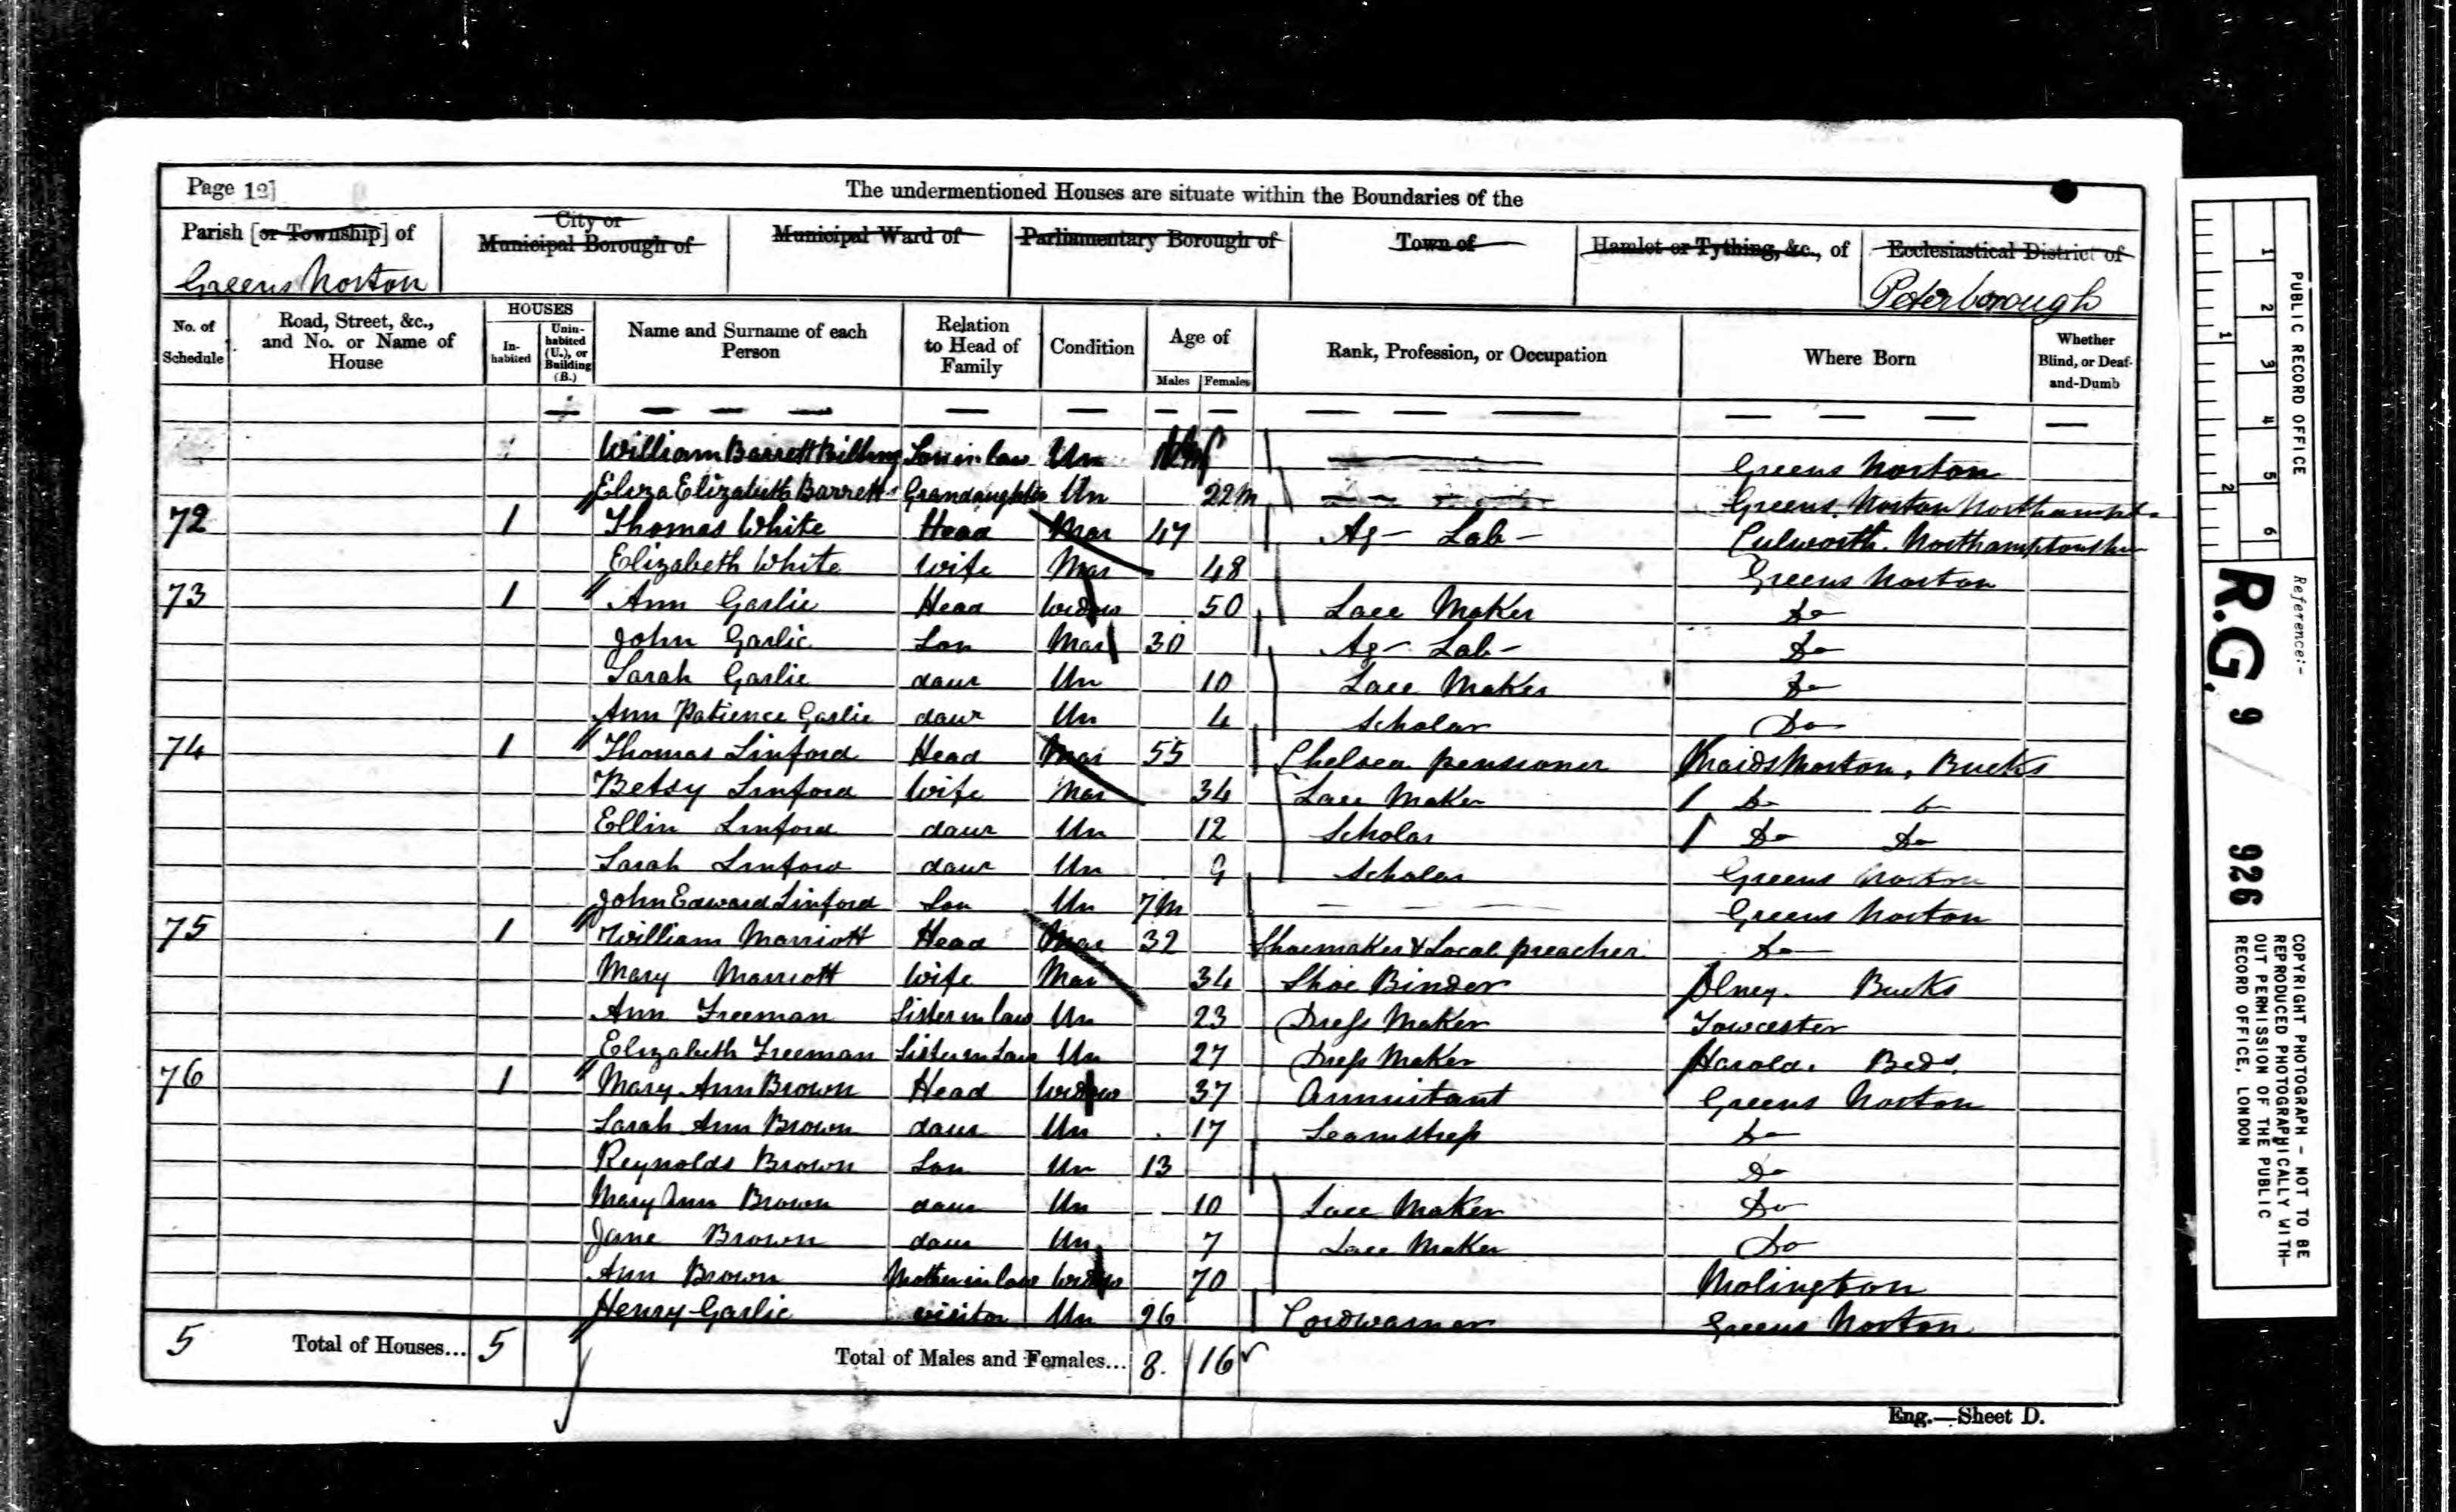 Page 12]
The undermentioned Houses are situate within the Boundaries of the
Parish [or Township] of
City or Municipal Borough of
Municipal Ward of
Parliamentary Borough of
Town of
Hamlet or Tything, &c., of
Ecclesiastical District of
Greens Norton
Peterborough
No. of Schedule
Road, Street, &c., and No. or Name of House
HOUSES
In-habited
Unin-habited (U.), or Building (B.)
Name and Surname of each Person
Relation to Head of Family
Condition
Age of
Males
Females
Rank, Profession, or Occupation
Where Born
Whether Blind, or Deaf-and-Dumb
William Barrett Billing Son in law Un Greens Norton
Eliza Elizabeth Barrett Grandaughter Un 22m Greens Norton Northampt
72 1 Thomas White Head Mar 47 Ag Lab Culworth Northamptonshire
Elizabeth White Wife Mar 48 Greens Norton
73 1 Ann Garlic Head Widow 50 Lace Maker Do
John Garlic Son Mar 30 Ag Lab Do
Sarah Garlic daur Un 10 Lace Maker Do
Ann Patience Garlic daur Un 4 Scholar Do
74 1 Thomas Linford Head Mar 55 Chelsea pensioner Maids Morton, Bucks
Betsy Linford Wife Mar 34 Lace Maker Do Do
Ellin Linford daur Un 12 Scholar Do Do
Sarah Linford daur Un 9 Scholar Greens Norton
John Edward Linford Son Un 7m Greens Norton
75 1 William Marriott Head Mar 32 Shoemaker & Local preacher Do
Mary Marriott Wife Mar 34 Shoe Binder Olney. Bucks
Ann Freeman Sister in law Un 23 Dress Maker Towcester
Elizabeth Freeman Sister in Law Un 27 Dress Maker Harold. Beds.
76 1 Mary Ann Brown Head Widow 37 Annuitant Greens Norton
Sarah Ann Brown daur Un 17 Seamstress Do
Reynolds Brown Son Un 13 Do
Mary Ann Brown daur Un 10 Lace Maker Do
Jane Brown daur Un 7 Lace Maker Do
Ann Brown Mother in law Widow 70 Molington
Henry Garlic visitor Un 26 Cordwainer Greens Norton
5 Total of Houses... 5 Total of Males and Females... 8. 16
Eng.—Sheet D.
PUBLIC RECORD OFFICE
1 2 3 4 5 6
1 2
Reference:-
R.G. 9 926
COPYRIGHT PHOTOGRAPH - NOT TO BE
REPRODUCED PHOTOGRAPHICALLY WITH-
OUT PERMISSION OF THE PUBLIC
RECORD OFFICE, LONDON